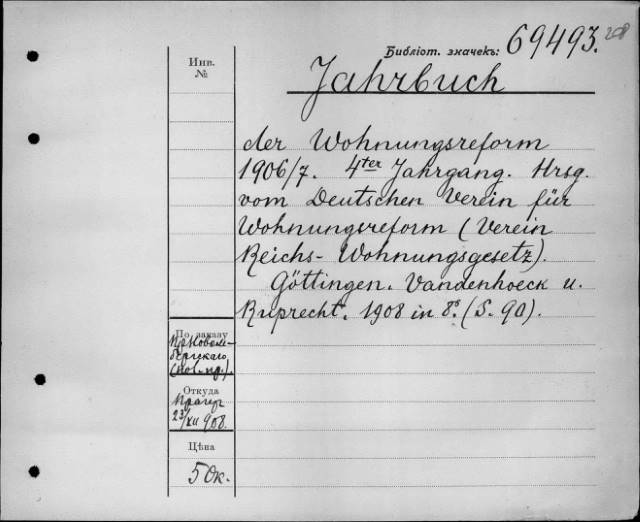 Библіот. значекъ: 69493.
Инв.
№
Jahrbuch
der Wohnungsreform
1906/7. 4ter Jahrgang. Hrsg.
vom Deutschen Verein für
Wohnungsreform (Verein
Reichs-Wohnungsgesetz).
Göttingen. Vandenhoeck u.
Ruprecht. 1908 in 8º. (S. 90).
По заказу
Откуда
23/XII 908.
Цѣна
50к.